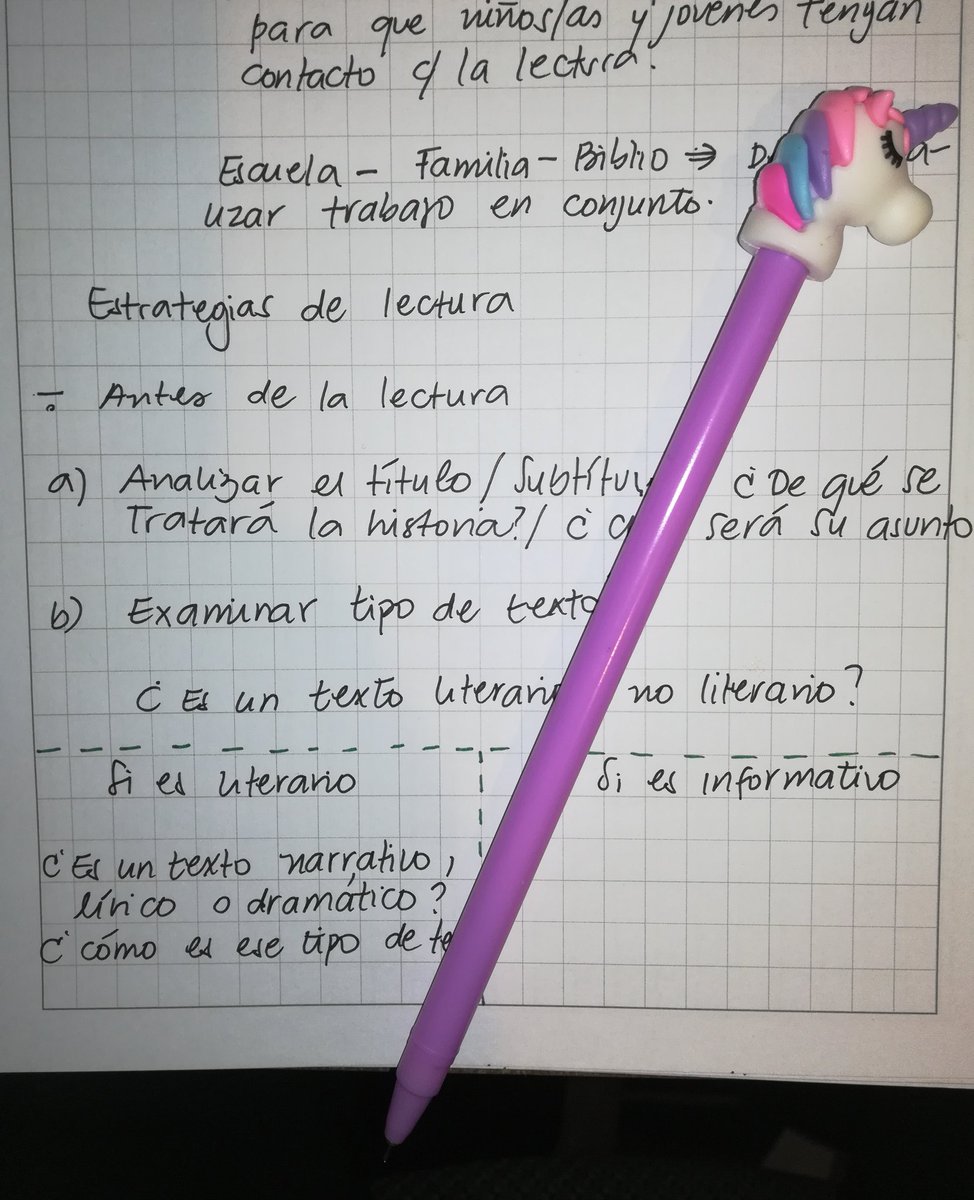 para que niños/as y jovenes tengan
contacto c/ la lectura.
Escuela - Familia - Biblio ⇒
lizar trabajo en conjunto.
Estrategias de lectura
Antes de la lectura
a) Analizar el título / Subtítu ¿De qué se
Tratará la historia? / ¿ será su asunto
b) Examinar tipo de texto
¿Es un texto literario no literario?
Si es literario Si es informativo
¿Es un texto narrativo,
lírico o dramático?
¿cómo es ese tipo de